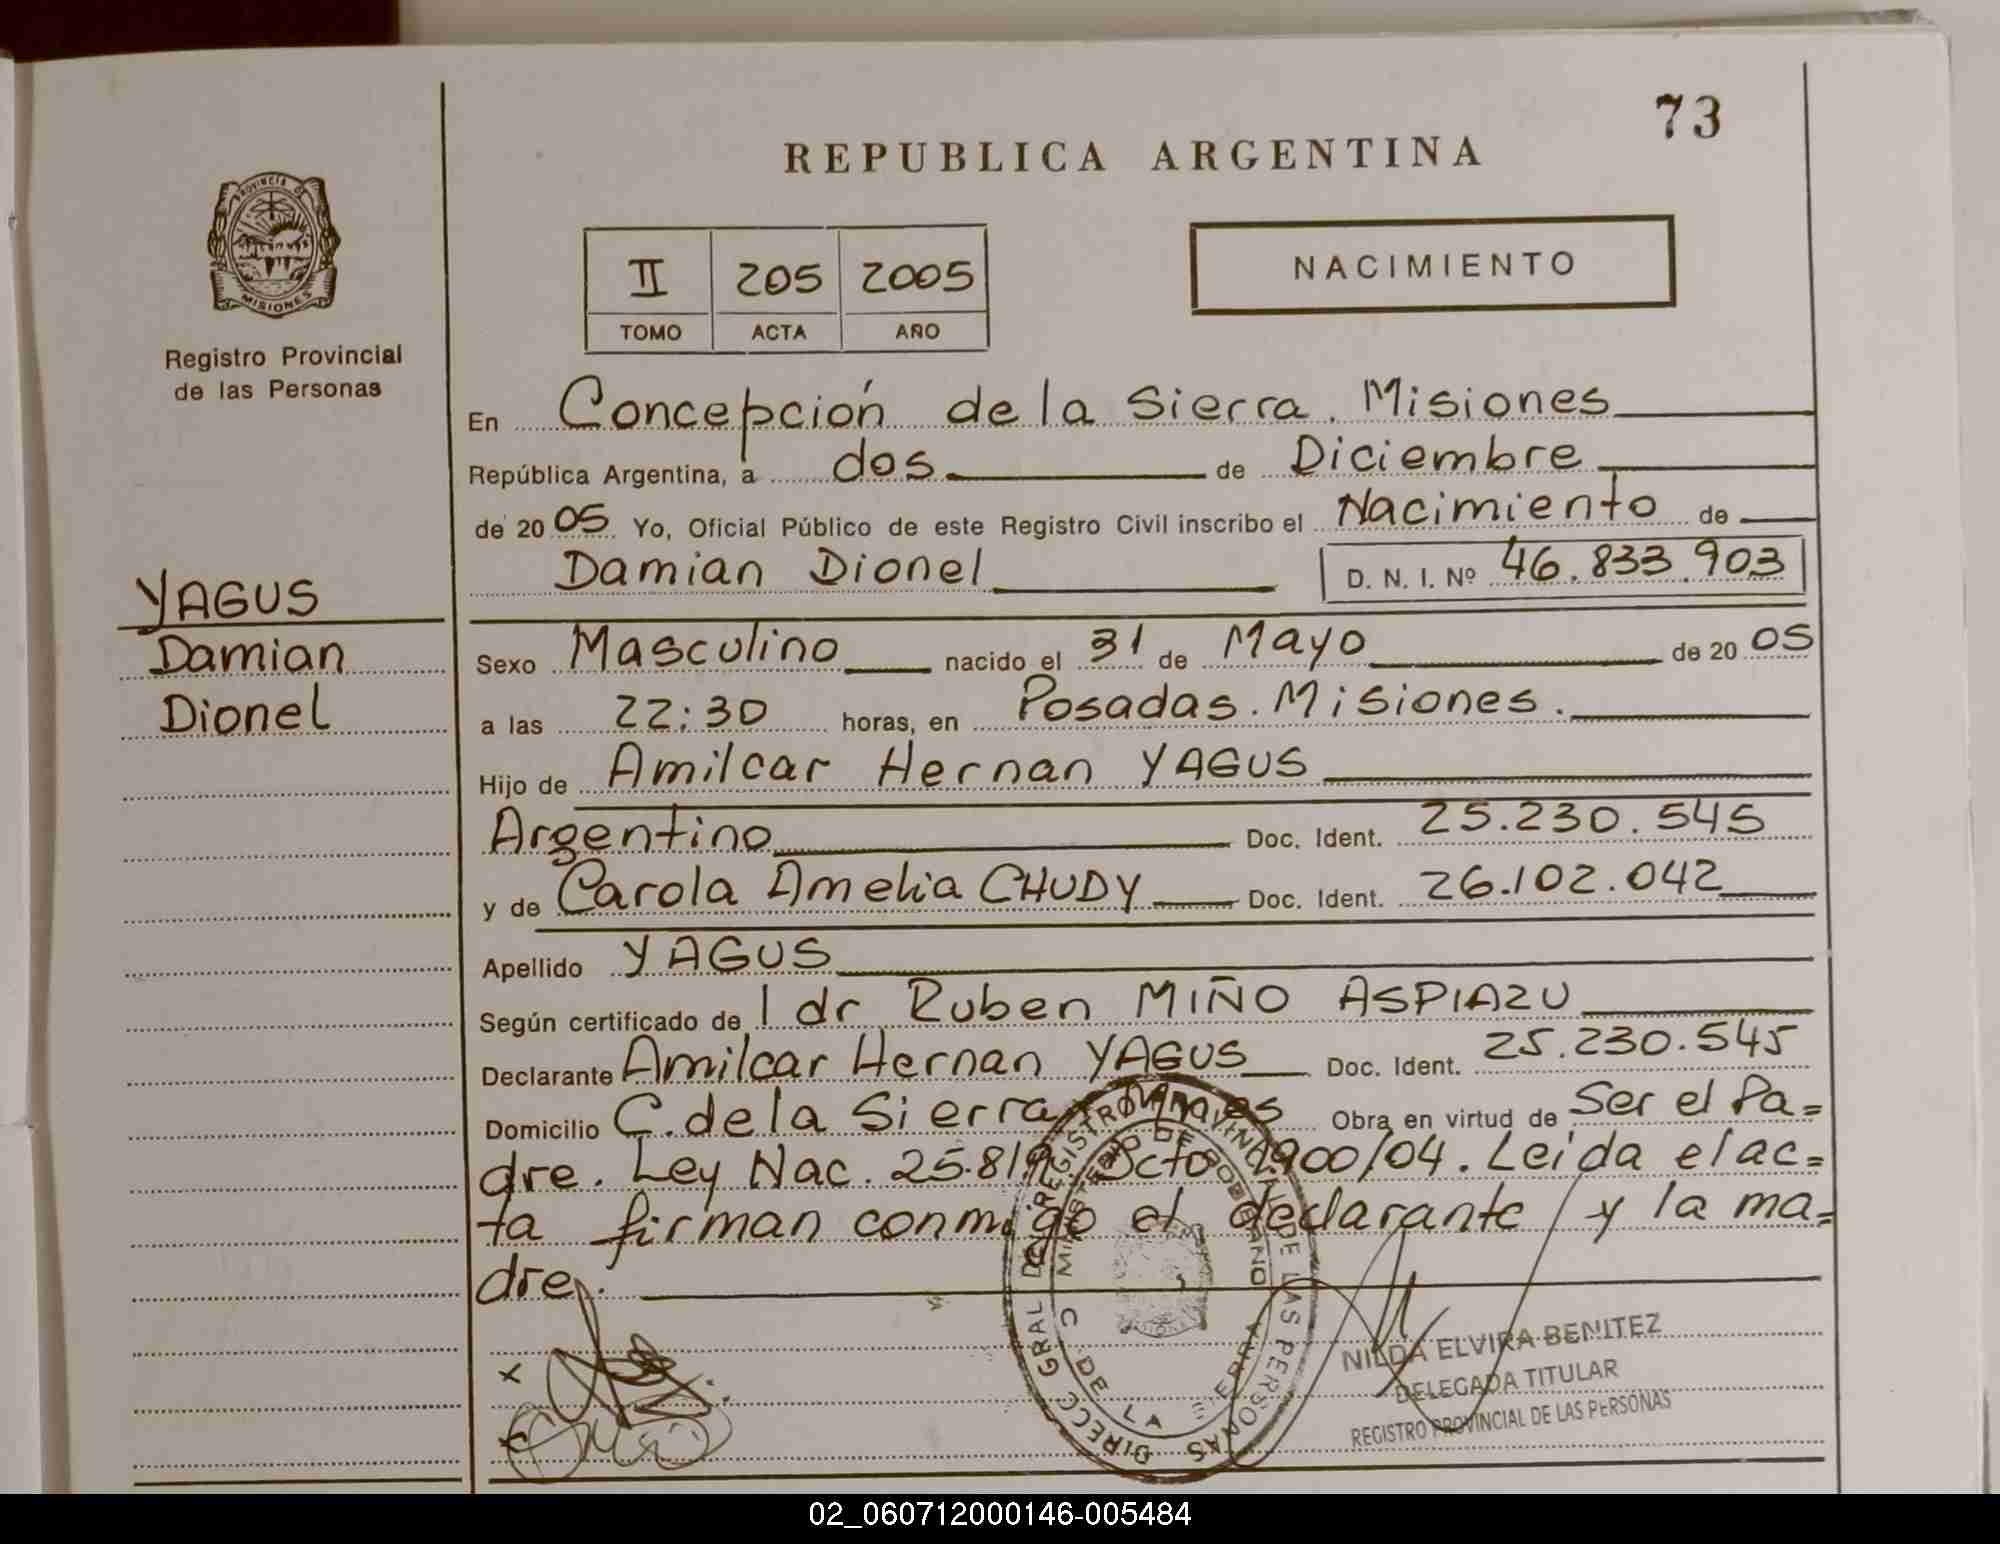 73
REPUBLICA ARGENTINA
PROVINCIA DE
MISIONES
Registro Provincial
de las Personas
II 205 2005
TOMO ACTA AÑO
NACIMIENTO
En Concepción de la Sierra. Misiones
República Argentina, a dos de Diciembre
de 2005 Yo, Oficial Público de este Registro Civil inscribo el Nacimiento de
Damian Dionel D. N. I. Nº 46.833.903
YAGUS
Damian
Dionel
Sexo Masculino nacido el 31 de Mayo de 2005
a las 22:30 horas, en Posadas. Misiones.
Hijo de Amilcar Hernan YAGUS
Argentino Doc. Ident. 25.230.545
y de Carola Amelia CHUDY Doc. Ident. 26.102.042
Apellido YAGUS
Según certificado de l dr Ruben MIÑO ASPIAZU
Declarante Amilcar Hernan YAGUS Doc. Ident. 25.230.545
Domicilio C. de la Sierra Mnes Obra en virtud de Ser el Pa=
dre. Ley Nac. 25.819 Dcto 1.900/04. Leida el ac=
ta firman conmigo el declarante y la ma=
dre.
DIRECC GRAL DE REGISTRO PROVINCIAL DE LAS PERSONAS
MINISTERIO DE GOBIERNO
C DE LA SIERRA
NILDA ELVIRA BENITEZ
DELEGADA TITULAR
REGISTRO PROVINCIAL DE LAS PERSONAS
02_060712000146-005484